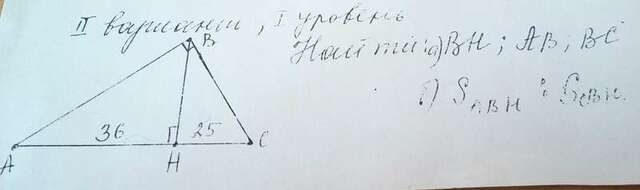 II вариант, I уровень
Найти: а) BH; AB; BC
б) S ABH : S CBH.
B
36 25
A H C